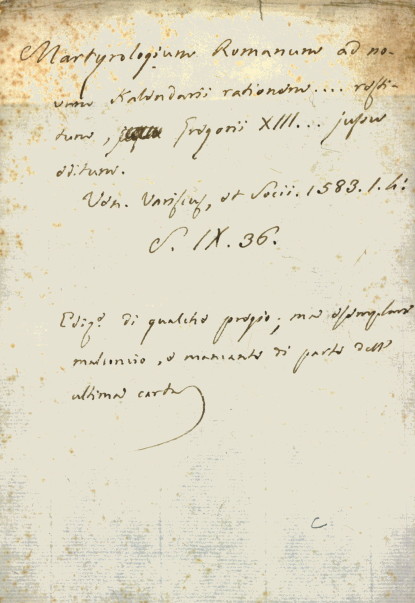 Martyrologium Romanum ad no-
vum Kalendarii rationem.... resti-
tum, Gregorii XIII... jussu
editum.
Ven. Varisius, et Socii. 1583. f. 4.º
S. IX. 36.
Ediz.e di qualche pregio, ma esemplare
malconcio, e mancante di parte dell'
ultima carta
C